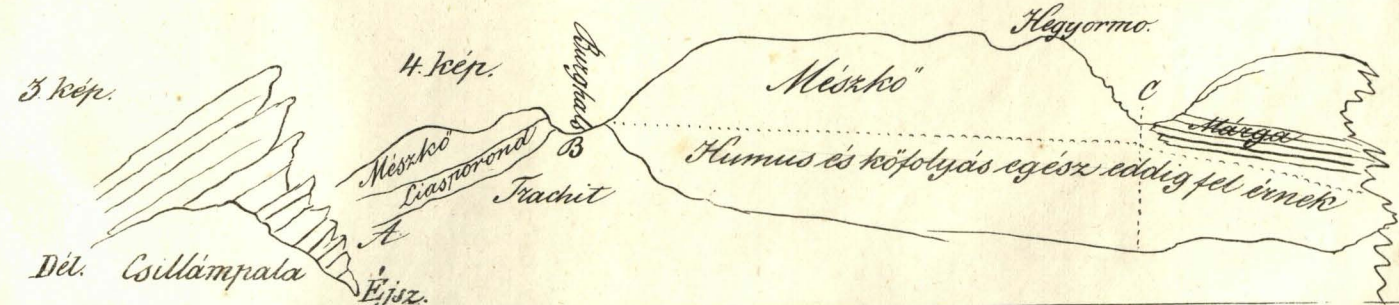 3. kép.
Dél.
Csillámpala
Éjsz.
4. kép.
Mészkő
Liasporond
A
Trachit
Burghals
B
Mészkő
Hegyormo.
C
Márga
Humus és kőfolyás egész eddig fel érnek